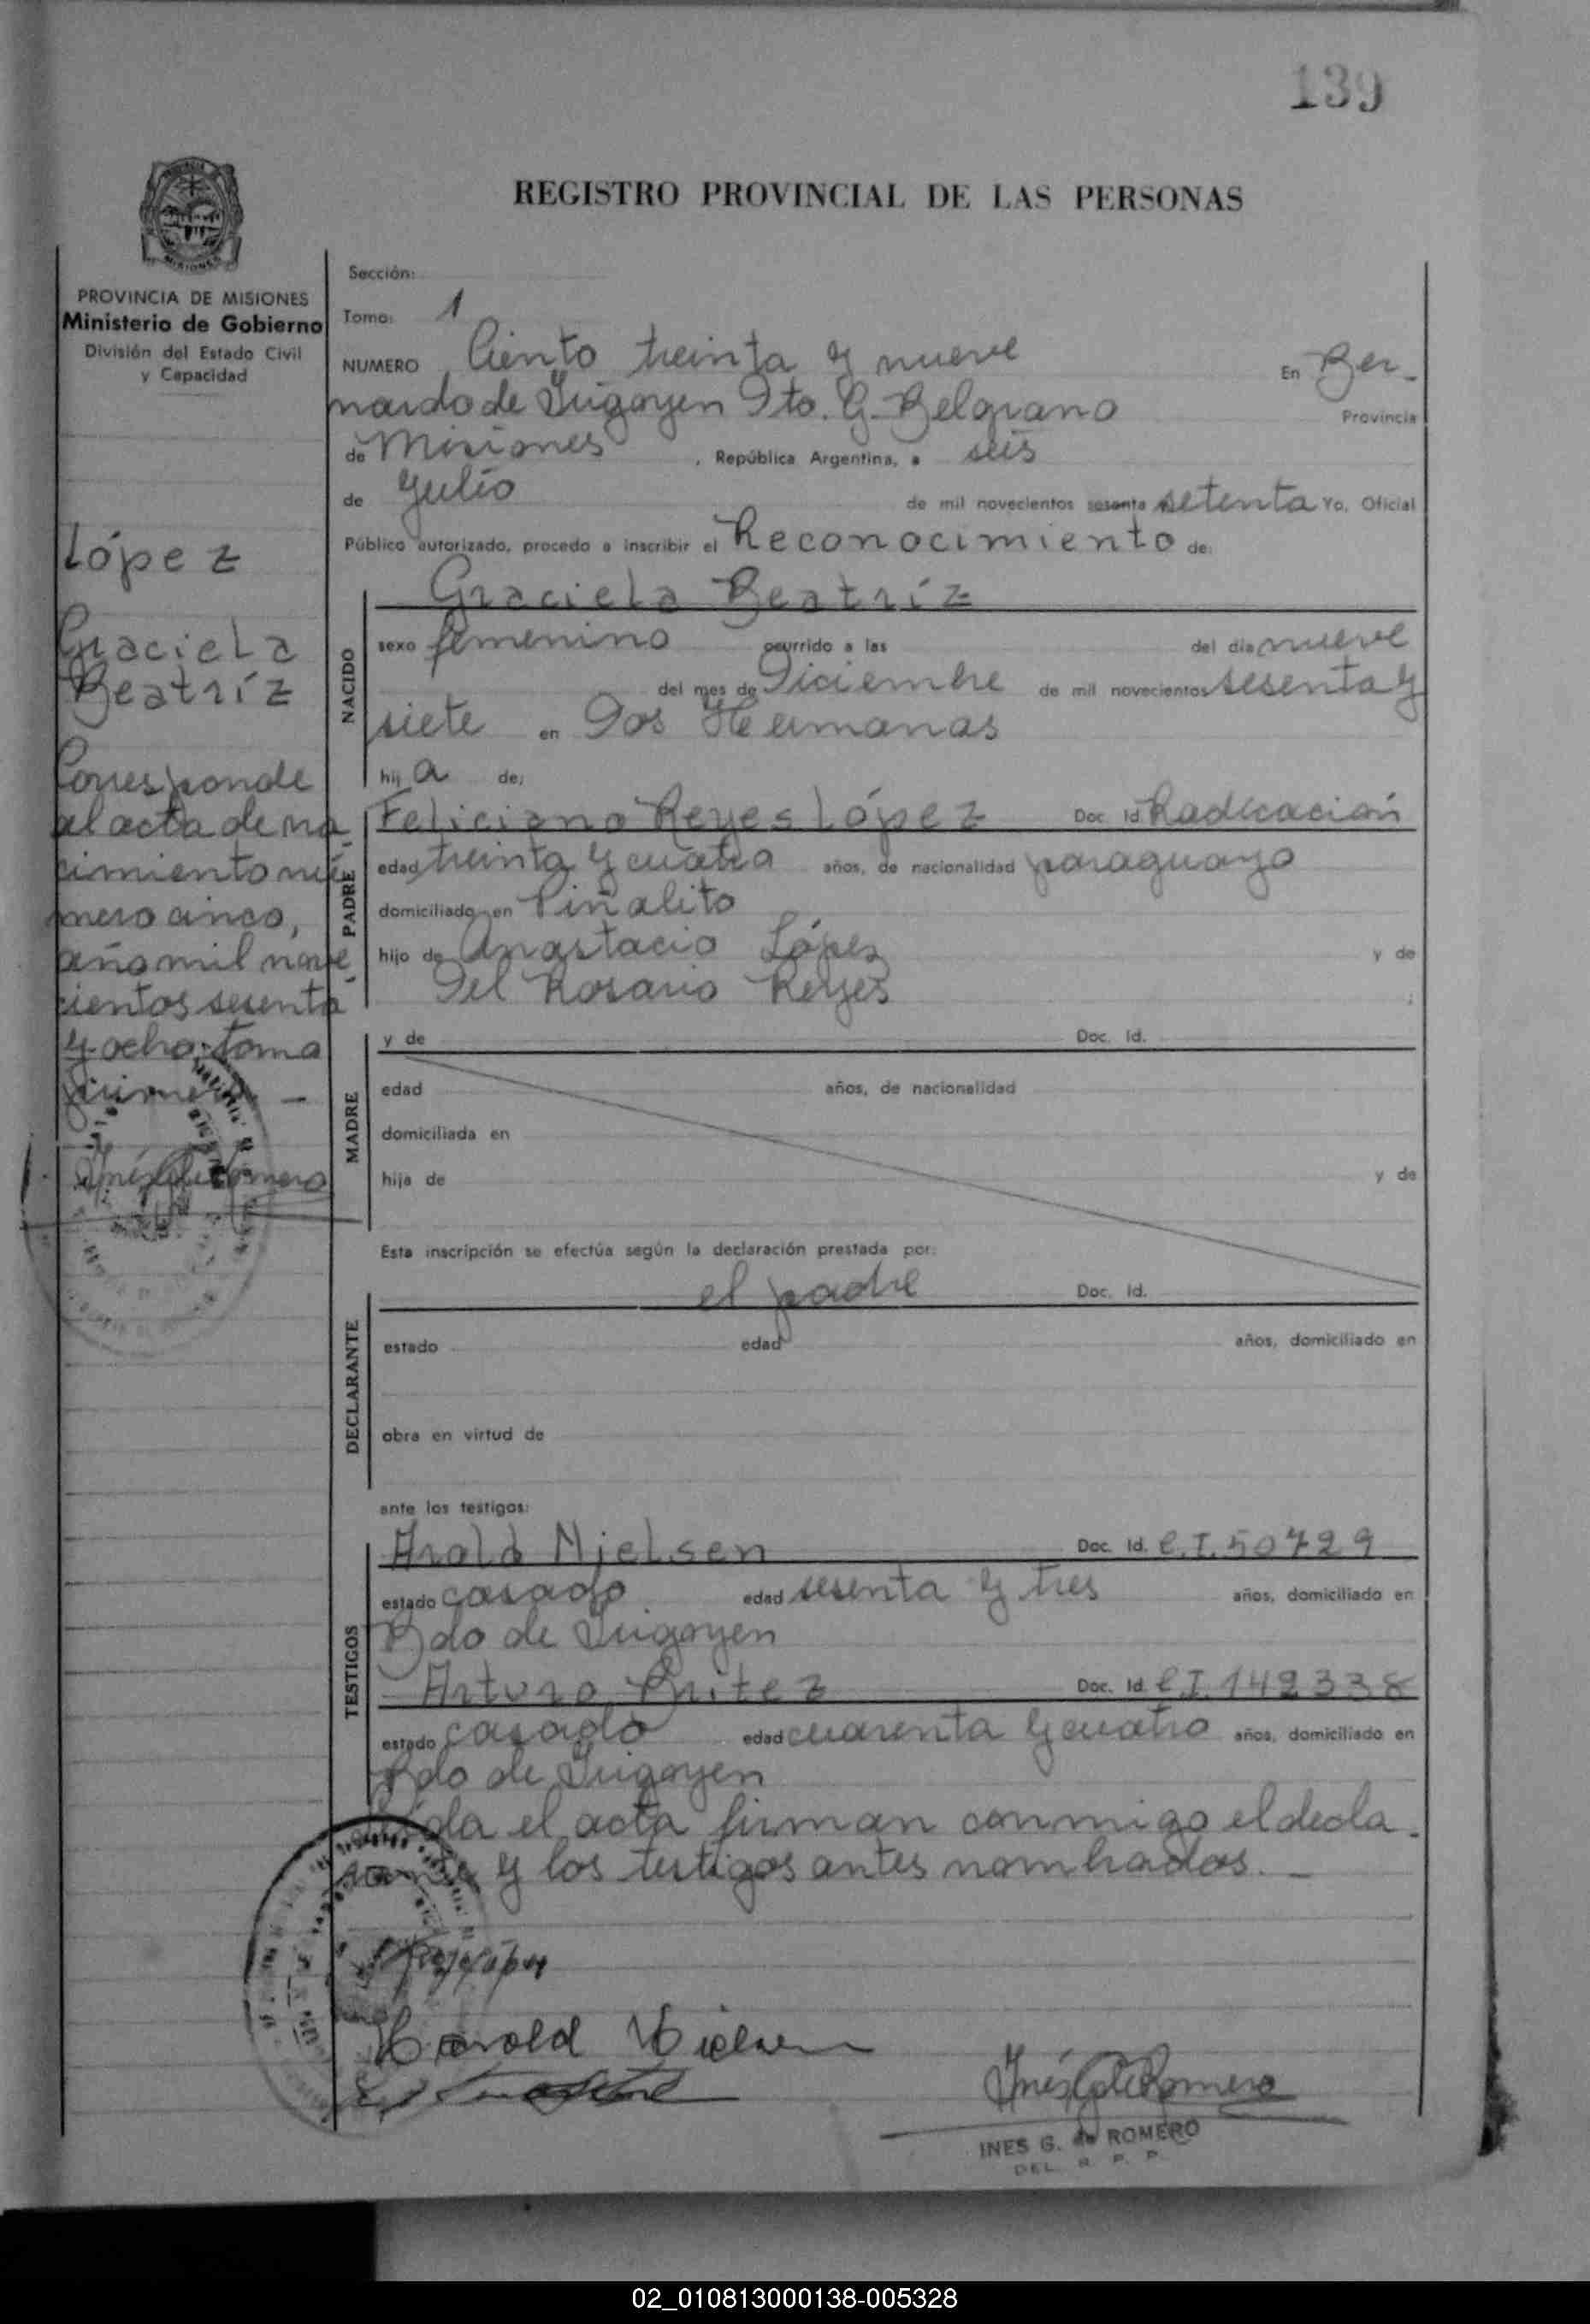 139
REGISTRO PROVINCIAL DE LAS PERSONAS
PROVINCIA DE MISIONES
Ministerio de Gobierno
División del Estado Civil
y Capacidad
López
Graciela
Beatríz
Corresponde
al acta de na
cimiento nú
mero cinco,
año mil nove
cientos sesenta
y ocho, tomo
primero. -
Inés G. de Romero
Sección:
Tomo: 1
NUMERO Ciento treinta y nueve En Ber-
nardo de Irigoyen Dto. G. Belgrano Provincia
de Misiones, República Argentina, a seis
de Julio de mil novecientos sesenta setenta Yo, Oficial
Público autorizado, procedo a inscribir el Reconocimiento de:
Graciela Beatríz
NACIDO
sexo femenino ocurrido a las del día nueve
del mes de Diciembre de mil novecientos sesenta y
siete en Dos Hermanas
hij a de:
PADRE
Feliciano Reyes López Doc. Id. Radicación
edad treinta y cuatro años, de nacionalidad paraguayo
domiciliado en Piñalito
hijo de Anastacio López y de
Del Rosario Reyes ;
MADRE
y de Doc. Id.
edad años, de nacionalidad
domiciliada en
hija de y de
Esta inscripción se efectúa según la declaración prestada por:
DECLARANTE
el padre Doc. Id.
estado edad años, domiciliado en
obra en virtud de
ante los testigos:
TESTIGOS
Arold Nielsen Doc. Id. C.I. 50729
estado casado edad sesenta y tres años, domiciliado en
Bdo de Irigoyen
Arturo Britez Doc. Id. C.I. 142338
estado casado edad cuarenta y cuatro años, domiciliado en
Bdo de Irigoyen
Leída el acta firman conmigo el decla-
rante y los testigos antes nombrados. -
Harold Nielsen
Inés G. de Romero
INES G. de ROMERO
DEL. R. P. P.
02_010813000138-005328